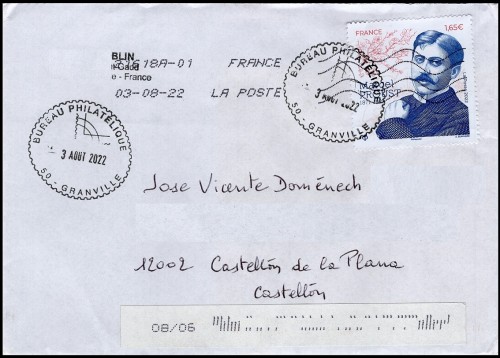 BLIN
618A-01 FRANCE
e - France
03-08-22 LA POSTE
FRANCE 1,65€
Marcel
PROUST
BUREAU PHILATÉLIQUE
3 AOUT 2022
50 - GRANVILLE
BUREAU PHILATÉLIQUE
3 AOUT 2022
50 - GRANVILLE
Jose Vicente Doménech
12002 Castellón de la Plana
Castellón
08/06